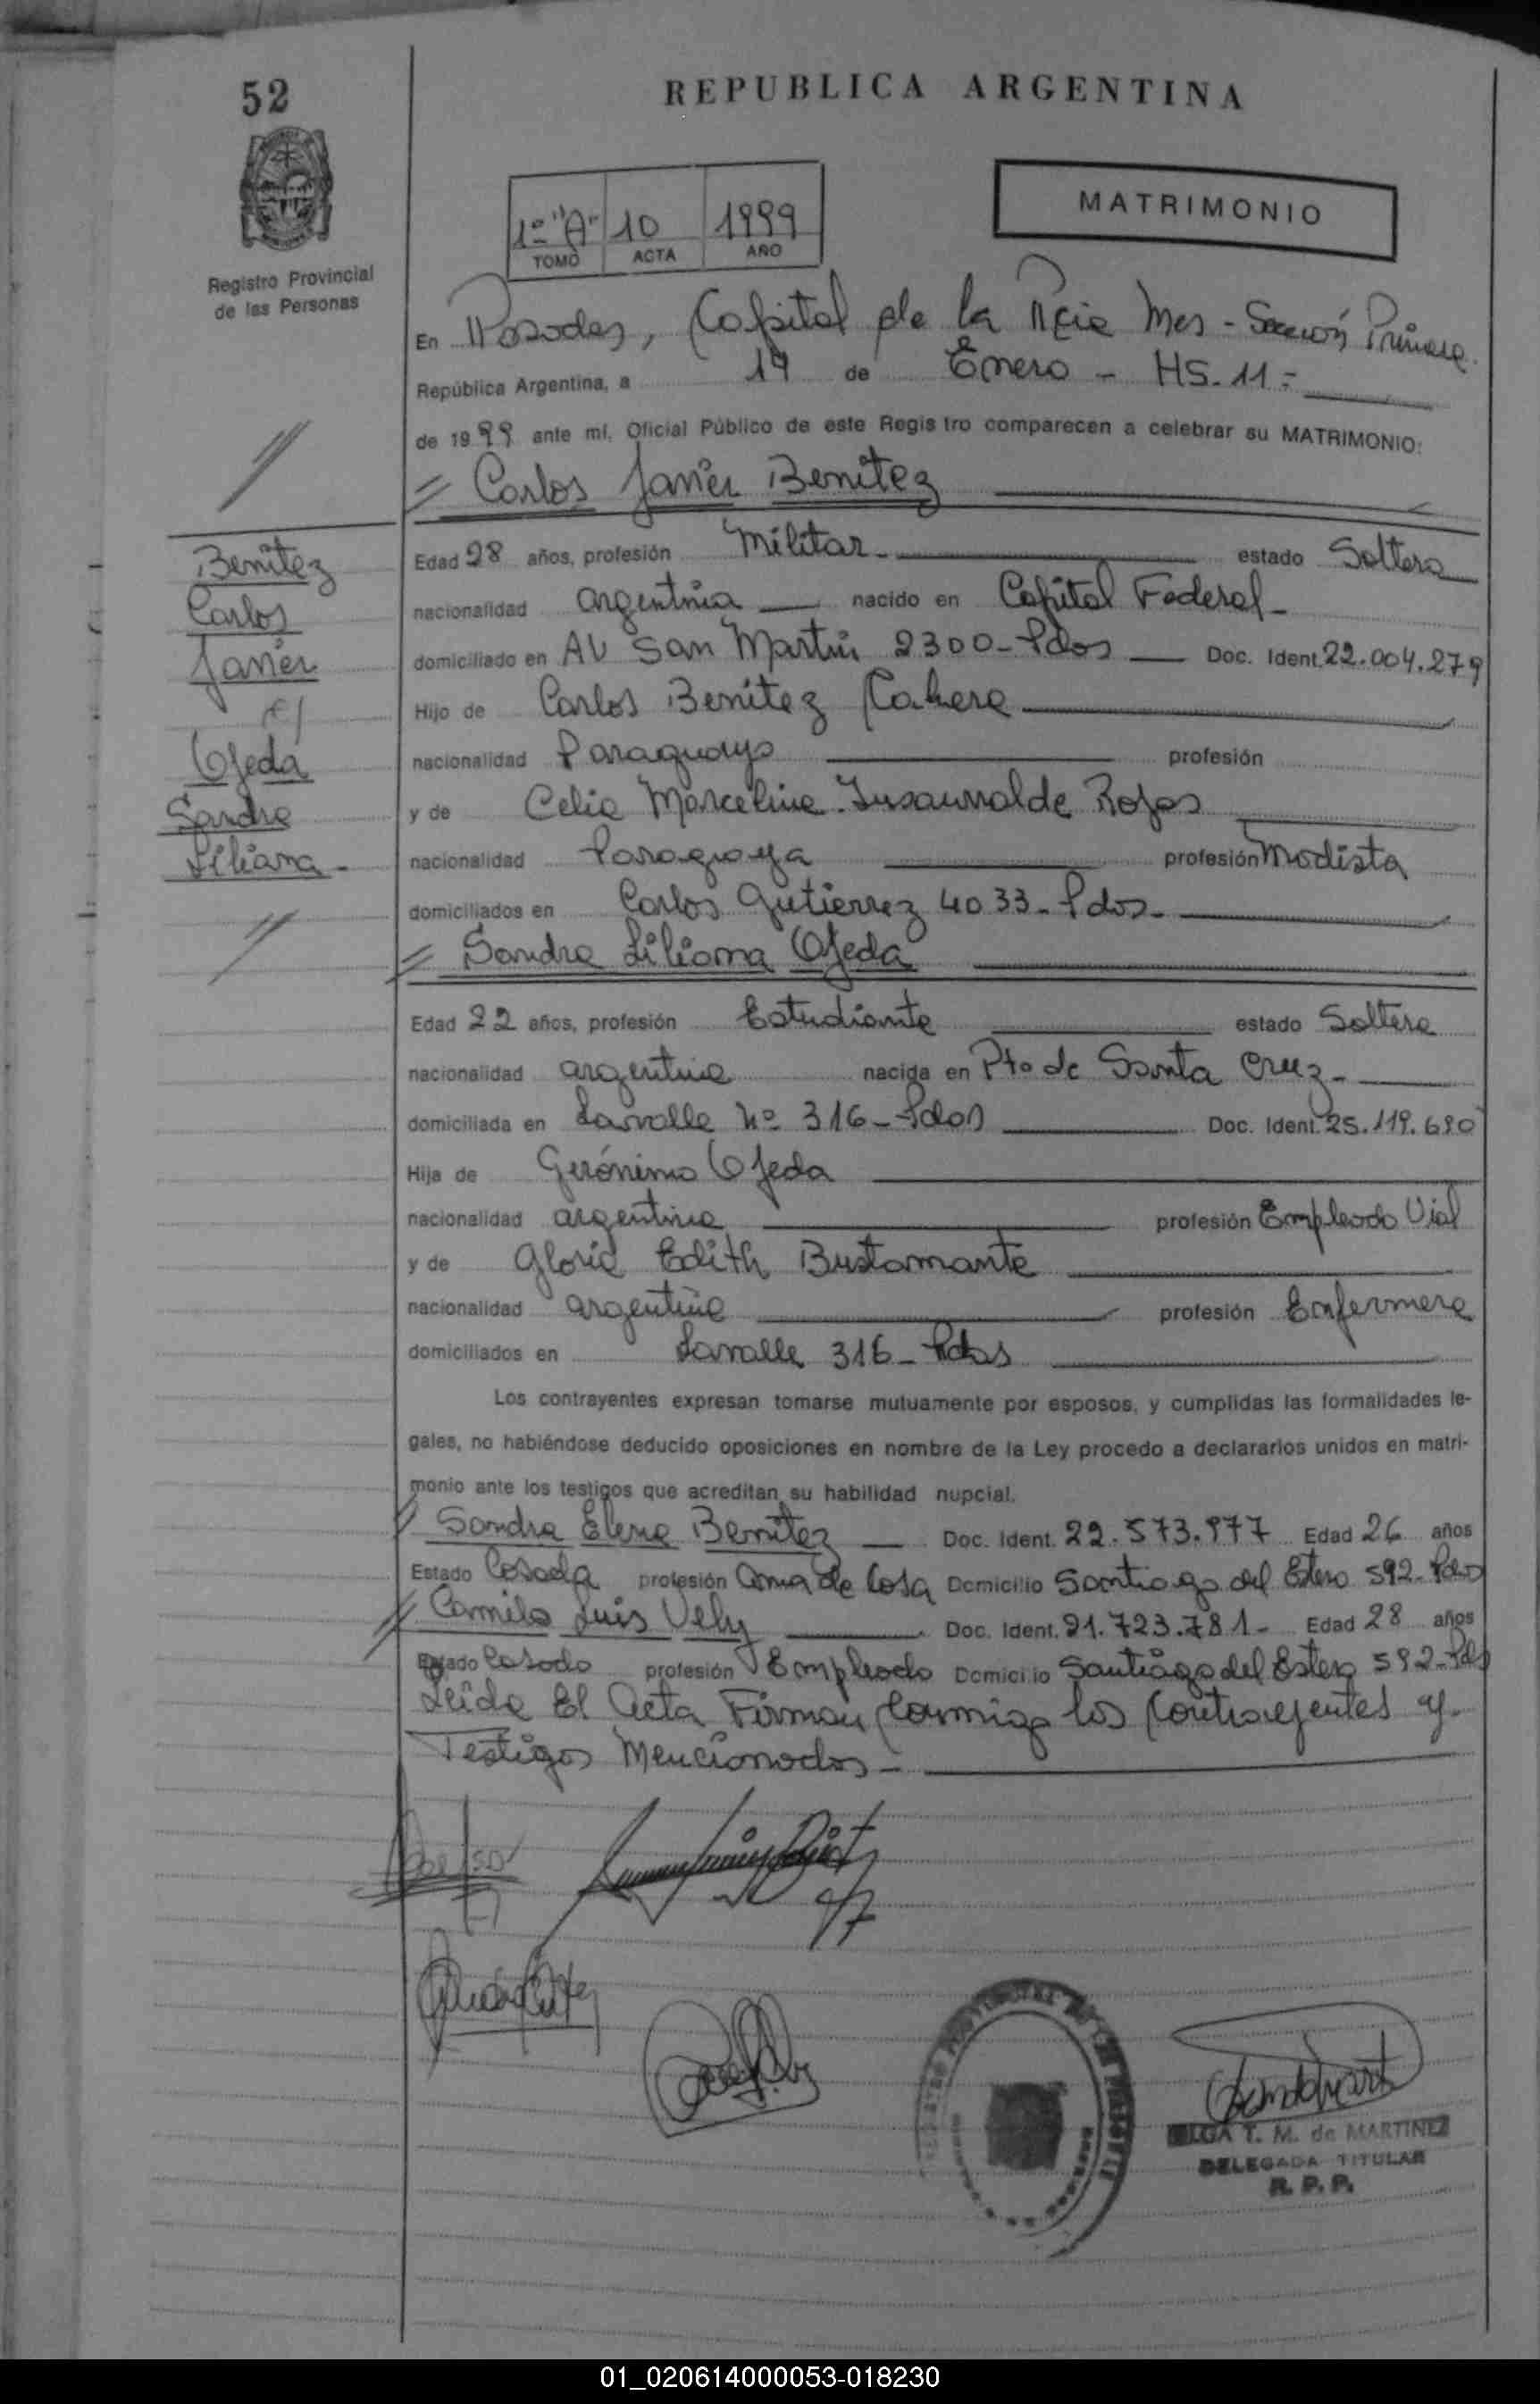 52
REPUBLICA ARGENTINA
MATRIMONIO
1º "A" 10 1999
TOMO ACTA AÑO
Registro Provincial
de las Personas
En Posadas, Capital de la Pcia Mnes - Sección Primera.
República Argentina, a 19 de Enero - HS. 11 -
de 1999 ante mí, Oficial Público de este Registro comparecen a celebrar su MATRIMONIO:
Carlos Javier Benitez
Benitez
Carlos
Javier
c/
Ojeda
Sandra
Liliana -
Edad 28 años, profesión Militar - estado Soltero
nacionalidad argentina nacido en Capital Federal -
domiciliado en AV San Martin 2300 - Pdas Doc. Ident. 22.004.279
Hijo de Carlos Benitez Cabera
nacionalidad Paraguayo profesión
y de Celia Marcelina Insaurralde Rojas
nacionalidad Paraguaya profesión Modista
domiciliados en Carlos Gutierrez 4033 - Pdas -
Sandra Liliana Ojeda
Edad 22 años, profesión Estudiante estado Soltera
nacionalidad argentina nacida en Pto de Santa Cruz -
domiciliada en Lavalle Nº 316 - Pdas Doc. Ident. 25.119.690
Hija de Gerónimo Ojeda
nacionalidad argentina profesión Empleado Vial
y de Gloria Edith Bustamante
nacionalidad argentina profesión Enfermera
domiciliados en Lavalle 316 - Pdas
Los contrayentes expresan tomarse mutuamente por esposos, y cumplidas las formalidades le-
gales, no habiéndose deducido oposiciones en nombre de la Ley procedo a declararlos unidos en matri-
monio ante los testigos que acreditan su habilidad nupcial.
Sandra Elena Benitez Doc. Ident. 22.573.977 Edad 26 años
Estado Casada profesión Ama de Casa Domicilio Santiago del Estero 592 - Pdas
Camilo Luis Vely Doc. Ident. 21.723.781 - Edad 28 años
Estado Casado profesión Empleado Domicilio Santiago del Estero 592 - Pdas
Leída El Acta Firman Conmigo los Contrayentes y
Testigos Mencionados -
OLGA T. M. de MARTINEZ
DELEGADA TITULAR
R. P. P.
01_020614000053-018230